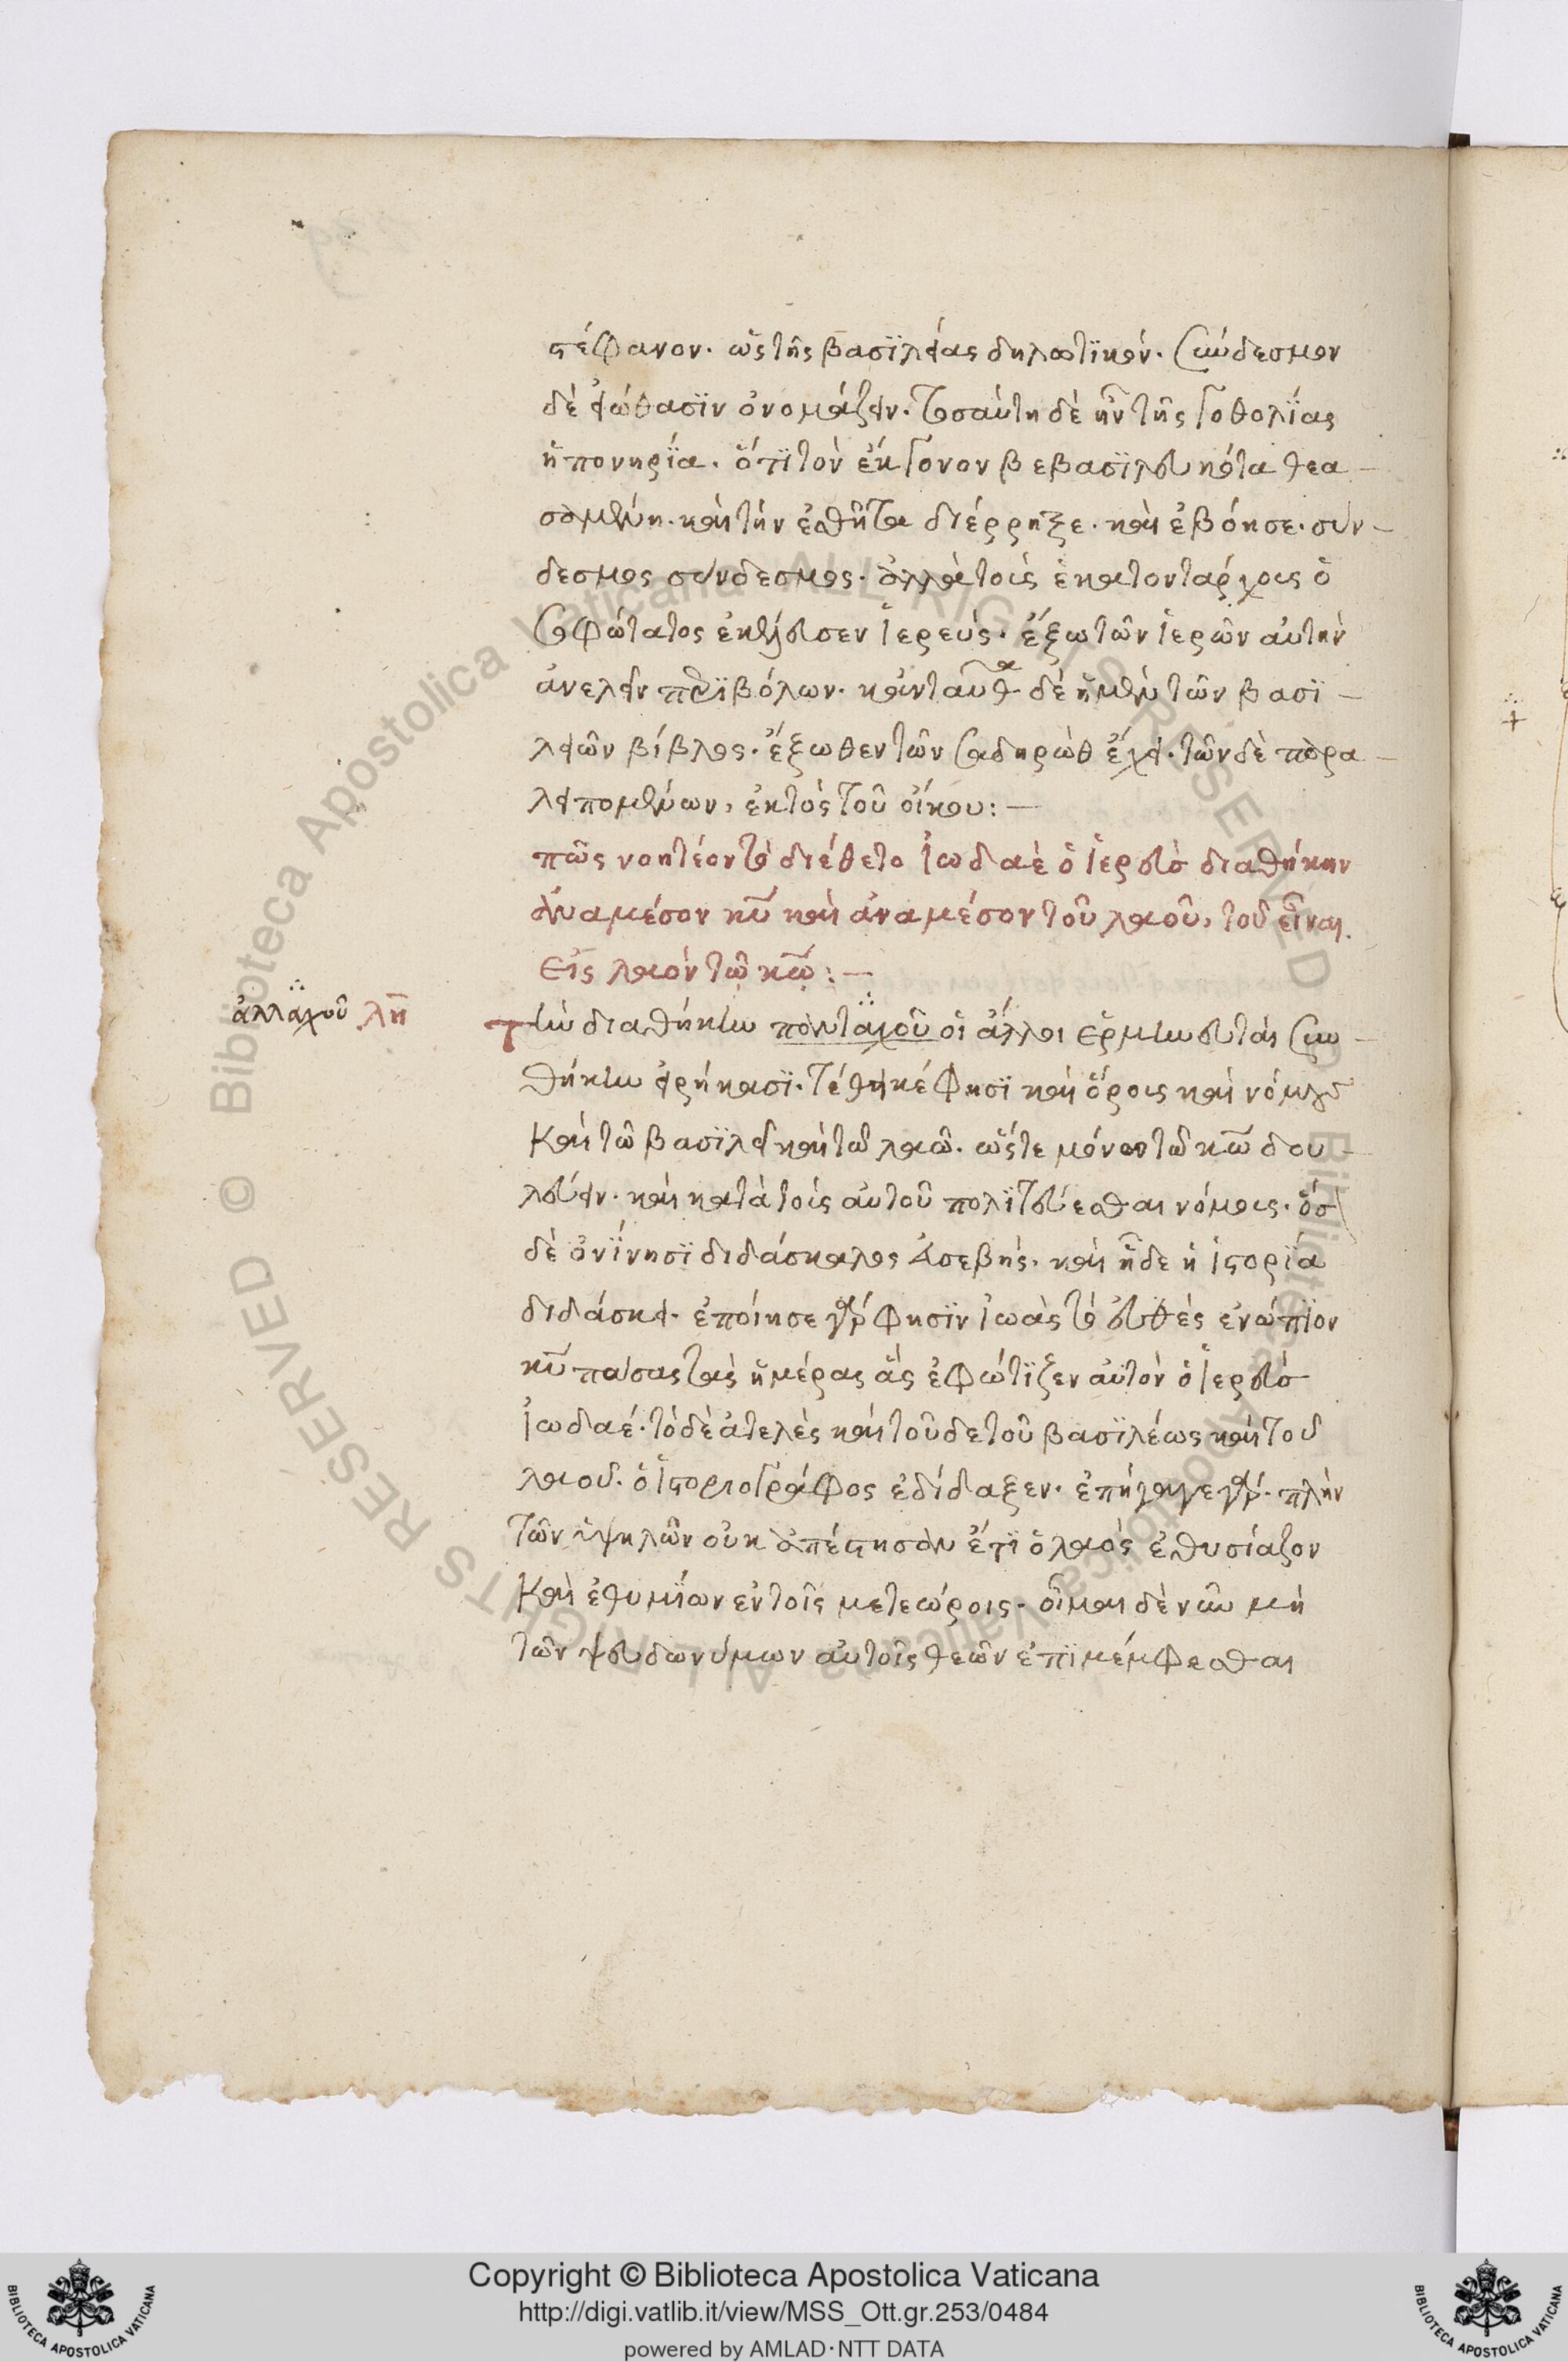 στέφανον. ὡς τῆς βασϊλείας δηλωτϊκόν. σύνδεσμον
δὲ εἰώθασϊν ὀνομάζειν. τοσαύτη δὲ ἦν τῆς γοθολΐας
ἡ πονηρΐα. ὅτι τὸν ἔκγονον βεβασϊλευκότα θεα-
σαμένη. καὶ τὴν ἐσθῆτα διέρρηξε. καὶ ἐβόησε. σύν-
δεσμος σύνδεσμος. ἀλλὰ τοῖς ἑκατοντάρχοις ὁ
σοφώτατος ἐκέλευσεν ἱερεύς. ἔξω τῶν ἱερῶν αὐτὴν
ἀνελεῖν περϊβόλων. κἀνταῦθα δὲ ἡ μὲν τῶν βασϊ-
λειῶν βίβλος. ἔξωθεν τῶν σαδηρὼθ ἔχει. τῶν δὲ παρα-
λειπομένων, ἐκτὸς τοῦ οἴκου:-
πῶς νοητέον τὸ διέθετο ἰωδαὲ ὁ ἱερεὺς διαθήκην
ἀναμέσον κ̅υ̅ καὶ ἀναμέσον τοῦ λαοῦ, τοῦ εἶναι
εἰς λαὸν τῷ κ̅ῳ̅:-
ἀλλαχοῦ λη
τὴν διαθήκην πανταχοῦ οἱ ἄλλοι ἑρμηνευταὶ συν-
θήκην εἰρήκασϊ. τέθεικέ φησϊ καὶ ὅρους καὶ νόμους
καὶ τῷ βασϊλεῖ καὶ τῷ λαῷ. ὥστε μόνω τῶ κ̅ω̅ δου-
λεύειν. καὶ κατὰ τοὺς αὐτοῦ πολϊτεύεσθαι νόμους. ὅσα
δὲ ὀνΐνησϊ διδάσκαλος εὐσεβὴς. καὶ ἥδε ἡ ἱστορΐα
διδάσκει. ἐποίησε γάρ φησϊν ἰωὰς τὸ εὐθὲς ἐνώπϊον
κ̅υ̅ πάσας τὰς ἡμέρας ἃς ἐφώτϊζεν αὐτὸν ὁ ἱερεὺς
ἰωδαέ. τὸ δὲ ἀτελὲς καὶ τοῦδε τοῦ βασϊλέως καὶ τοῦ
λαοῦ. ὁ ἱστοριογράφος ἐδίδαξεν. ἐπήγαγε γάρ. πλὴν
τῶν ὑψηλῶν οὐκ ἀπέστησαν ἔτϊ ὁ λαὸς ἐθυσίαζον
καὶ ἐθυμΐων ἐν τοῖς μετεώροις. οἶμαι δὲ νῦν μὴ
τῶν ψευδωνύμων αὐτοῖς θεῶν ἐπϊμέμφεσθαι
Copyright © Biblioteca Apostolica Vaticana
http://digi.vatlib.it/view/MSS_Ott.gr.253/0484
powered by AMLAD·NTT DATA